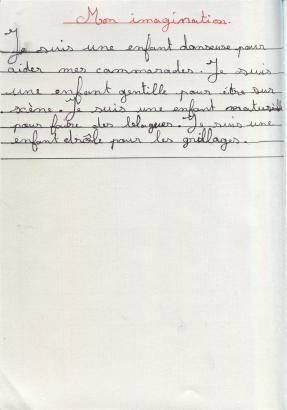 Mon imagination.
Je suis une enfant danseuse pour
aider mes cammarades. Je suis
une enfant gentille pour être sur
scène. Je suis une enfant
pour faire des blagues. Je suis une
enfant drôle pour les grillages.